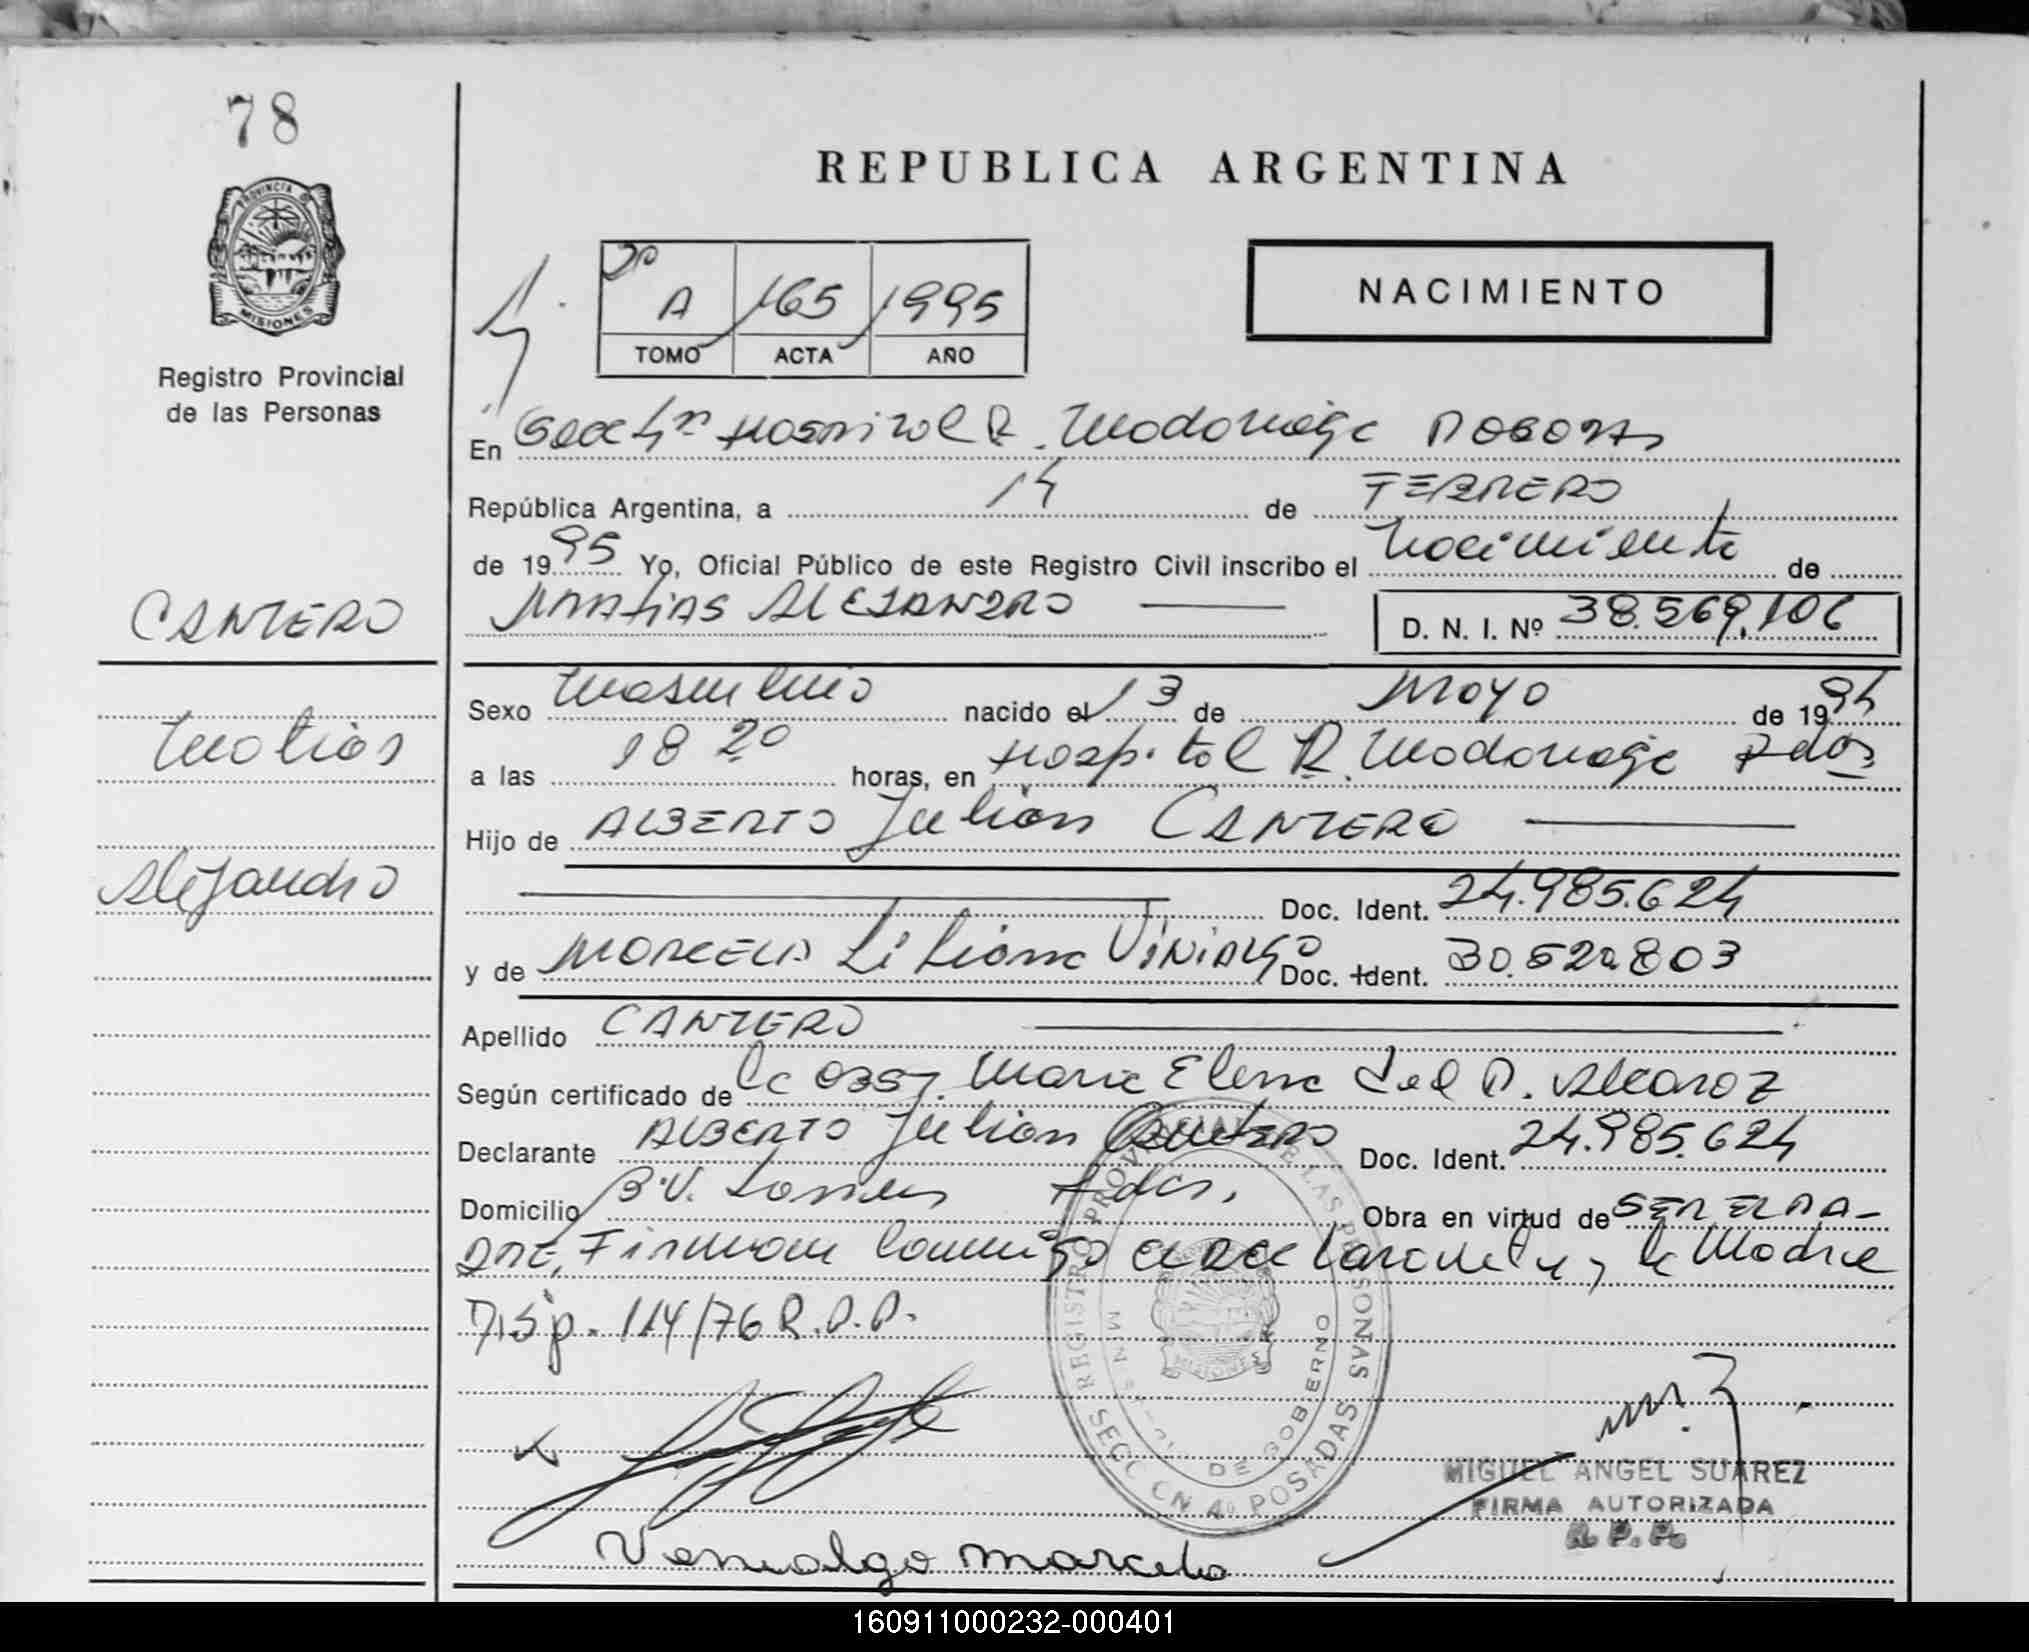 78
REPUBLICA ARGENTINA
PROVINCIA DE
MISIONES
Registro Provincial
de las Personas
A 165 1995
TOMO ACTA AÑO
NACIMIENTO
En Secc 4ª Hospital R. Madariaga
República Argentina, a 14 de FEBRERO
de 1995 Yo, Oficial Público de este Registro Civil inscribo el Nacimiento de
MATIAS ALEJANDRO D. N. I. Nº 38.569.106
CANTERO
Matias
Alejandro
Sexo Masculino nacido el 13 de Mayo de 1994
a las 18 20 horas, en Hospital R. Madariaga Pdas
Hijo de ALBERTO Julian CANTERO
Doc. Ident. 24.985.624
y de MARCELA Liliana Doc. Ident. 30.520.803
Apellido CANTERO
Según certificado de la Obst. Maria Elena del P. Alcaraz
Declarante ALBERTO Julian Cantero Doc. Ident. 24.985.624
Domicilio B.V. Pdas. Obra en virtud de SER EL PA-
DRE, Firman conmigo el Declarante y la Madre
Disp. 114/76 R.P.P.
REGISTRO PROVINCIAL DE LAS PERSONAS
SECCION 4ª POSADAS
DE GOBIERNO
MISIONES
MIGUEL ANGEL SUAREZ
FIRMA AUTORIZADA
R. P. P.
Venialgo marcela
160911000232-000401